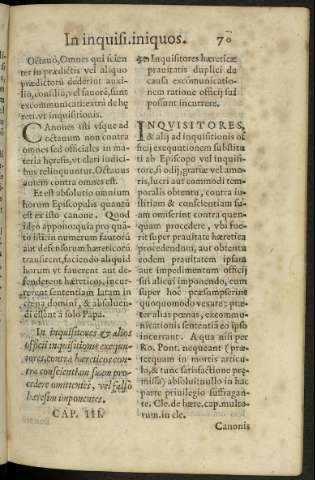 In inquisi.iniquos. 70
Octauò, Omnes qui scien
ter in prædictis vel aliquo
prædictorū dederint auxi-
lio, consilio, vel fauorē, sunt
excommunicati: extrā de hę
reti. vt inquisitionis.
CAnones isti vsque ad
octauum non contra
omnes sed officiales in ma-
teria heresis, vt clari iudici
bus relinquuntur. Octauus
autem contra omnes est.
Et est absolutio omnium
horum Episcopalis quanū
est ex isto canone. Quod
ideò appono: quia pro quā
to isti in numerum fautorū
aut defensorum hæreticorū
transirent, faciendo aliquid
horum vt fauerent aut de-
fenderent hæreticos, incur-
rerent sententiam latam in
cœna domini, & absoluen-
di essent à solo Papa.
In inquisitores & alios
officij inquisitionis exequu-
tores, contra hæreticos con-
tra conscientiam suam pro-
cedere omittentes, vel falso
hæresim imponentes.
CAP. III.
Inquisitores hæreticæ
prauitatis duplici de
causa excōmunicatio-
nem ratione officij sui
possunt incurrere.
INQVISITORES,
& alij ad inquisitionis of
ficij exequutionem substitu
ti ab Episcopo vel inquisi-
tore, si odij, gratiæ vel amo
ris, lucri aut commodi tem
poralis obtentu, contra iu-
stitiam & conscientiam su-
am omiserint contra quen-
quam procedere, vbi fue-
rit super prauitate hæretica
procedendum, aut obtentu
eodem prauitatem ipsam
aut impedimentum officij
sui alicui imponendo, eum
super hoc præsumpserint
quoquomodo vexare; præ-
ter alias pœnas, excommu-
nicationis sententiā eo ipso
incurrant. A qua nisi per
Ro. Pont. nequeant (præ-
terquam in mortis articu-
lo, & tunc satisfactione præ-
missa) absolui: nullo in hac
parte priuilegio suffragan-
te. Cle. de hære. cap. multo-
rum. in cle.
Canonis